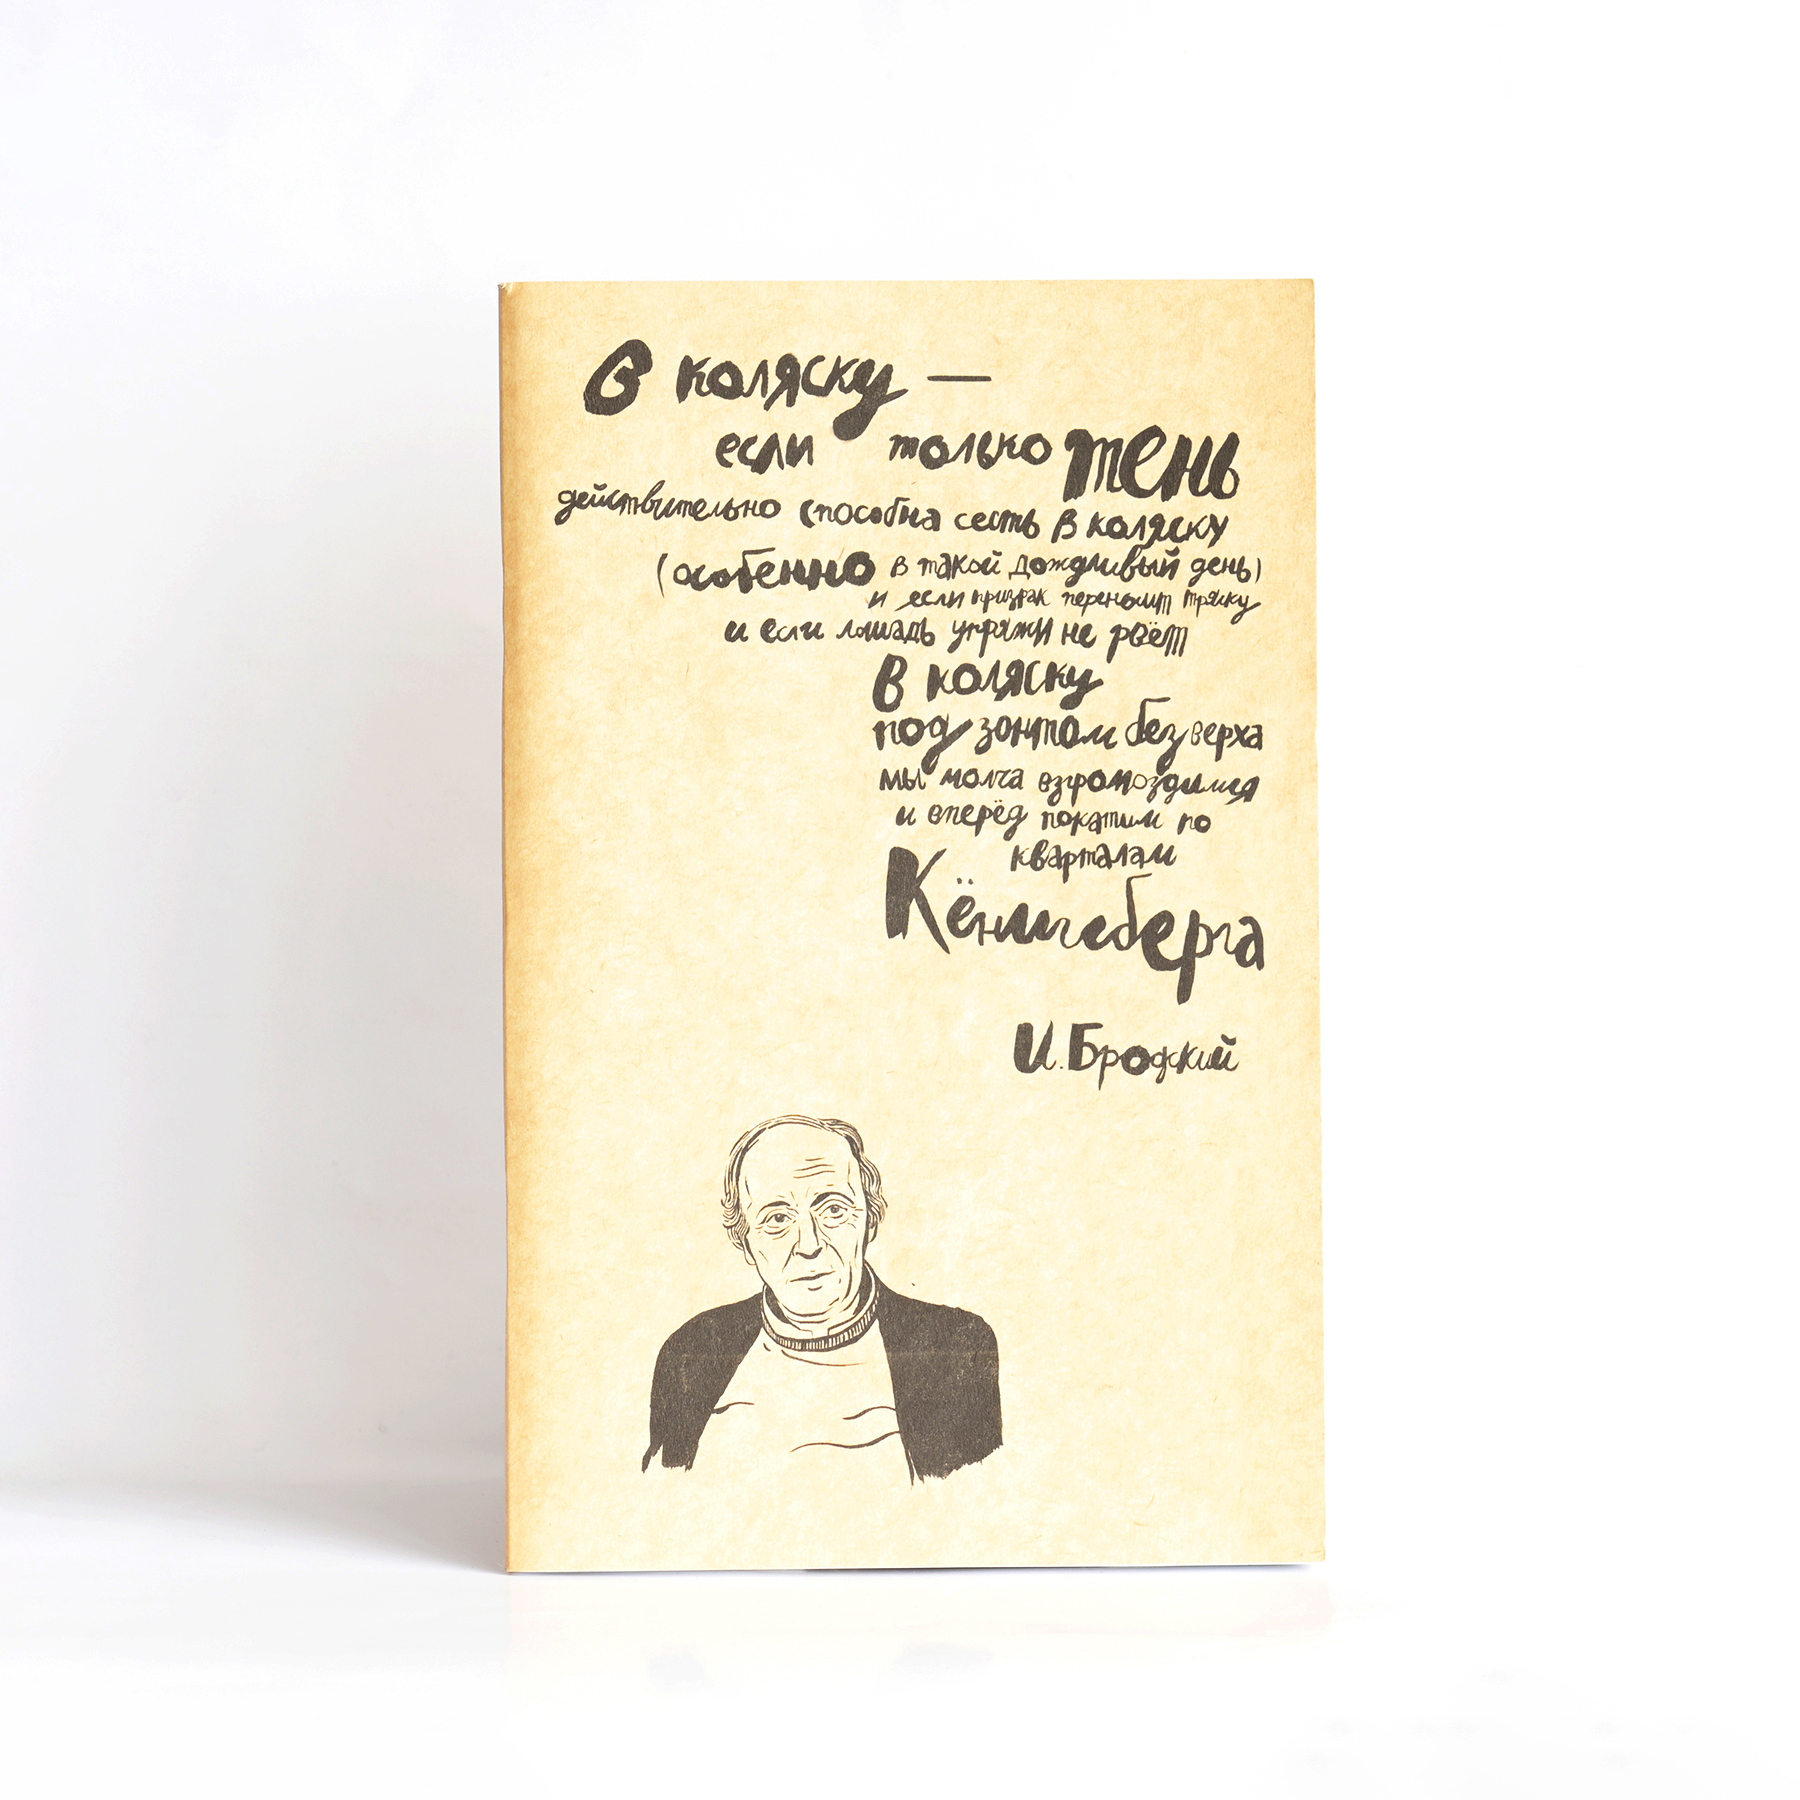 В коляску —
если только тень
действительно способна сесть в коляску
(особенно в такой дождливый день)
и если призрак переносит тряску
и если лошадь упряжи не рвёт
В коляску
под зонтом без верха
мы молча взгромоздимся
и вперёд покатим по
кварталам
Кёнигсберга
И. Бродский